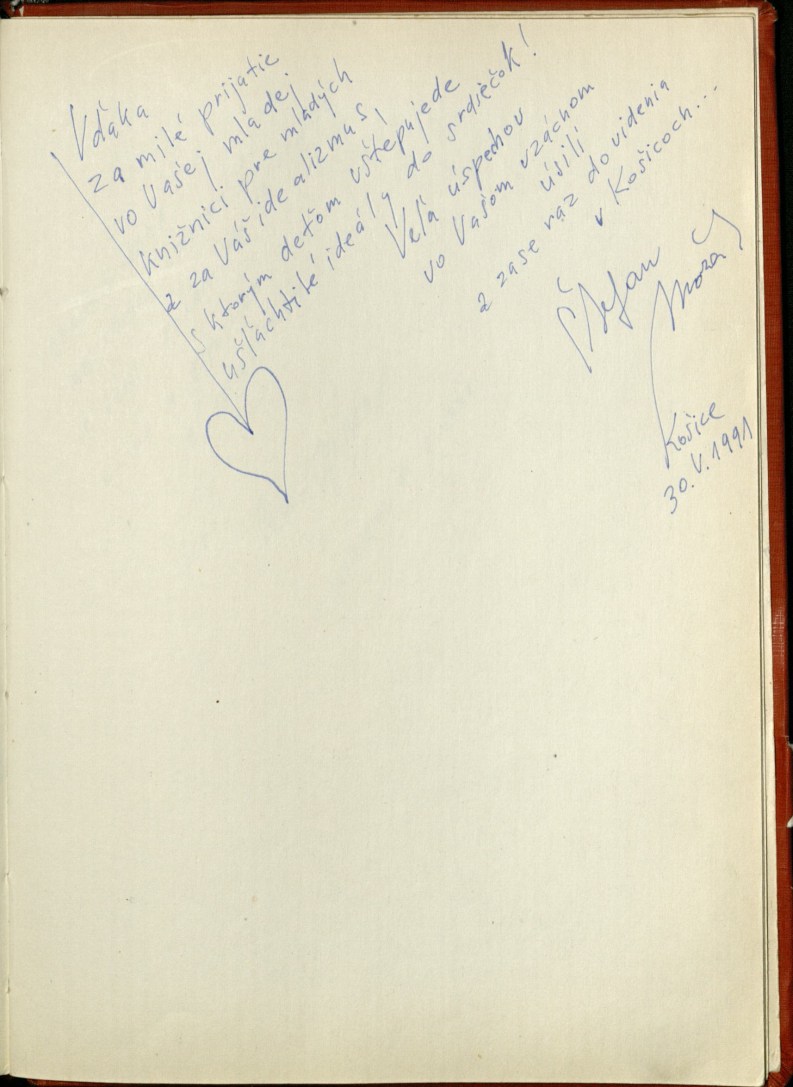 Vďaka
za milé prijatie
vo Vašej mladej
knižnici pre mladých
a za Váš idealizmus,
s ktorým deťom vštepujede
ušľachtilé ideály do srdiečok!
Veľa úspechov
vo Vašom vzácnom
úsilí
a zase raz dovidenia
v Košicoch...
Štefan
Košice
30.V.1991